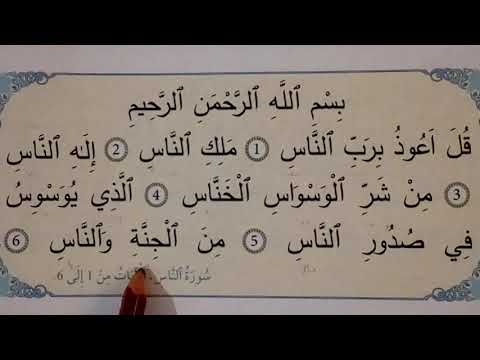 بِسْمِ ٱللَّهِ ٱلرَّحْمَنِ ٱلرَّحِيمِ
قُلَ اَعُوذُ بِرَبِّ ٱلنَّاسِ 1 مَلِكِ ٱلنَّاسِ 2 إِلَـٰهِ ٱلنَّاسِ
3 مِنْ شَرِّ ٱلْوَسْوَاسِ ٱلْخَنَّاسِ 4 ٱلَّذِي يُوَسْوِسُ
فِي صُدُورِ ٱلنَّاسِ 5 مِنَ ٱلْجِنَّةِ وَٱلنَّاسِ 6
سُورَةُ ٱلنَّاسِ مِنَ 1 إِلَى 6